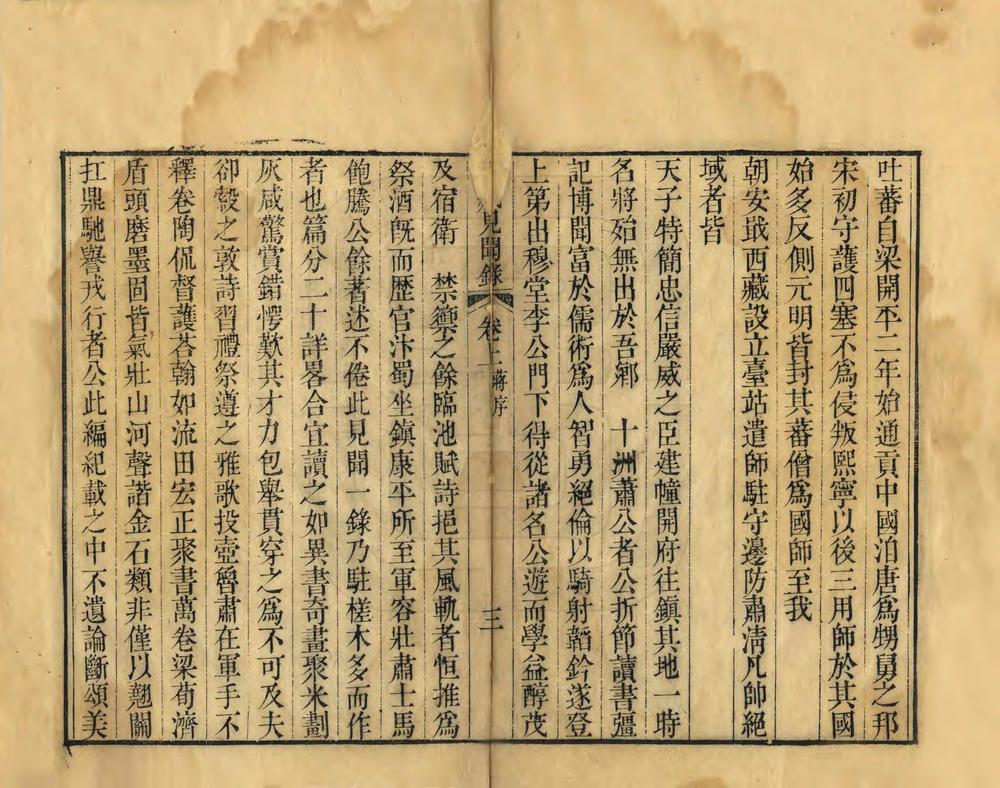 吐蕃自梁開平二年始通貢中國洎唐爲甥舅之邦
宋初守護四塞不爲侵叛熙寧以後三用師於其國
始多反側元明皆封其蕃僧爲國師至我
朝安戢西藏設立臺站遣師駐守邊防肅清凡帥絕
域者皆
天子特簡忠信嚴威之臣建幢開府往鎮其地一時
名將殆無出於吾鄉　十洲蕭公者公折節讀書彊
記博聞富於儒術爲人智勇絕倫以騎射韜鈐遂登
上第出穆堂李公門下得從諸名公遊而學益醇茂
見聞錄　卷上　蔣序　三
及宿衛　禁籞之餘臨池賦詩挹其風軌者恒推爲
祭酒旣而歴官汴蜀坐鎮康平所至軍容壯肅士馬
飽騰公餘著述不倦此見聞一錄乃駐槎木多而作
者也篇分二十詳畧合宜讀之如異書奇畫聚米劃
灰咸驚賞錯愕歎其才力包舉貫穿之爲不可及夫
卻縠之敦詩習禮祭遵之雅歌投壺魯肅在軍手不
釋卷陶侃督護荅翰如流田宏正聚書萬卷梁荀濟
盾頭磨墨固皆氣壯山河聲諧金石類非僅以翹關
扛鼎馳譽戎行者公此編紀載之中不遺論斷頌美